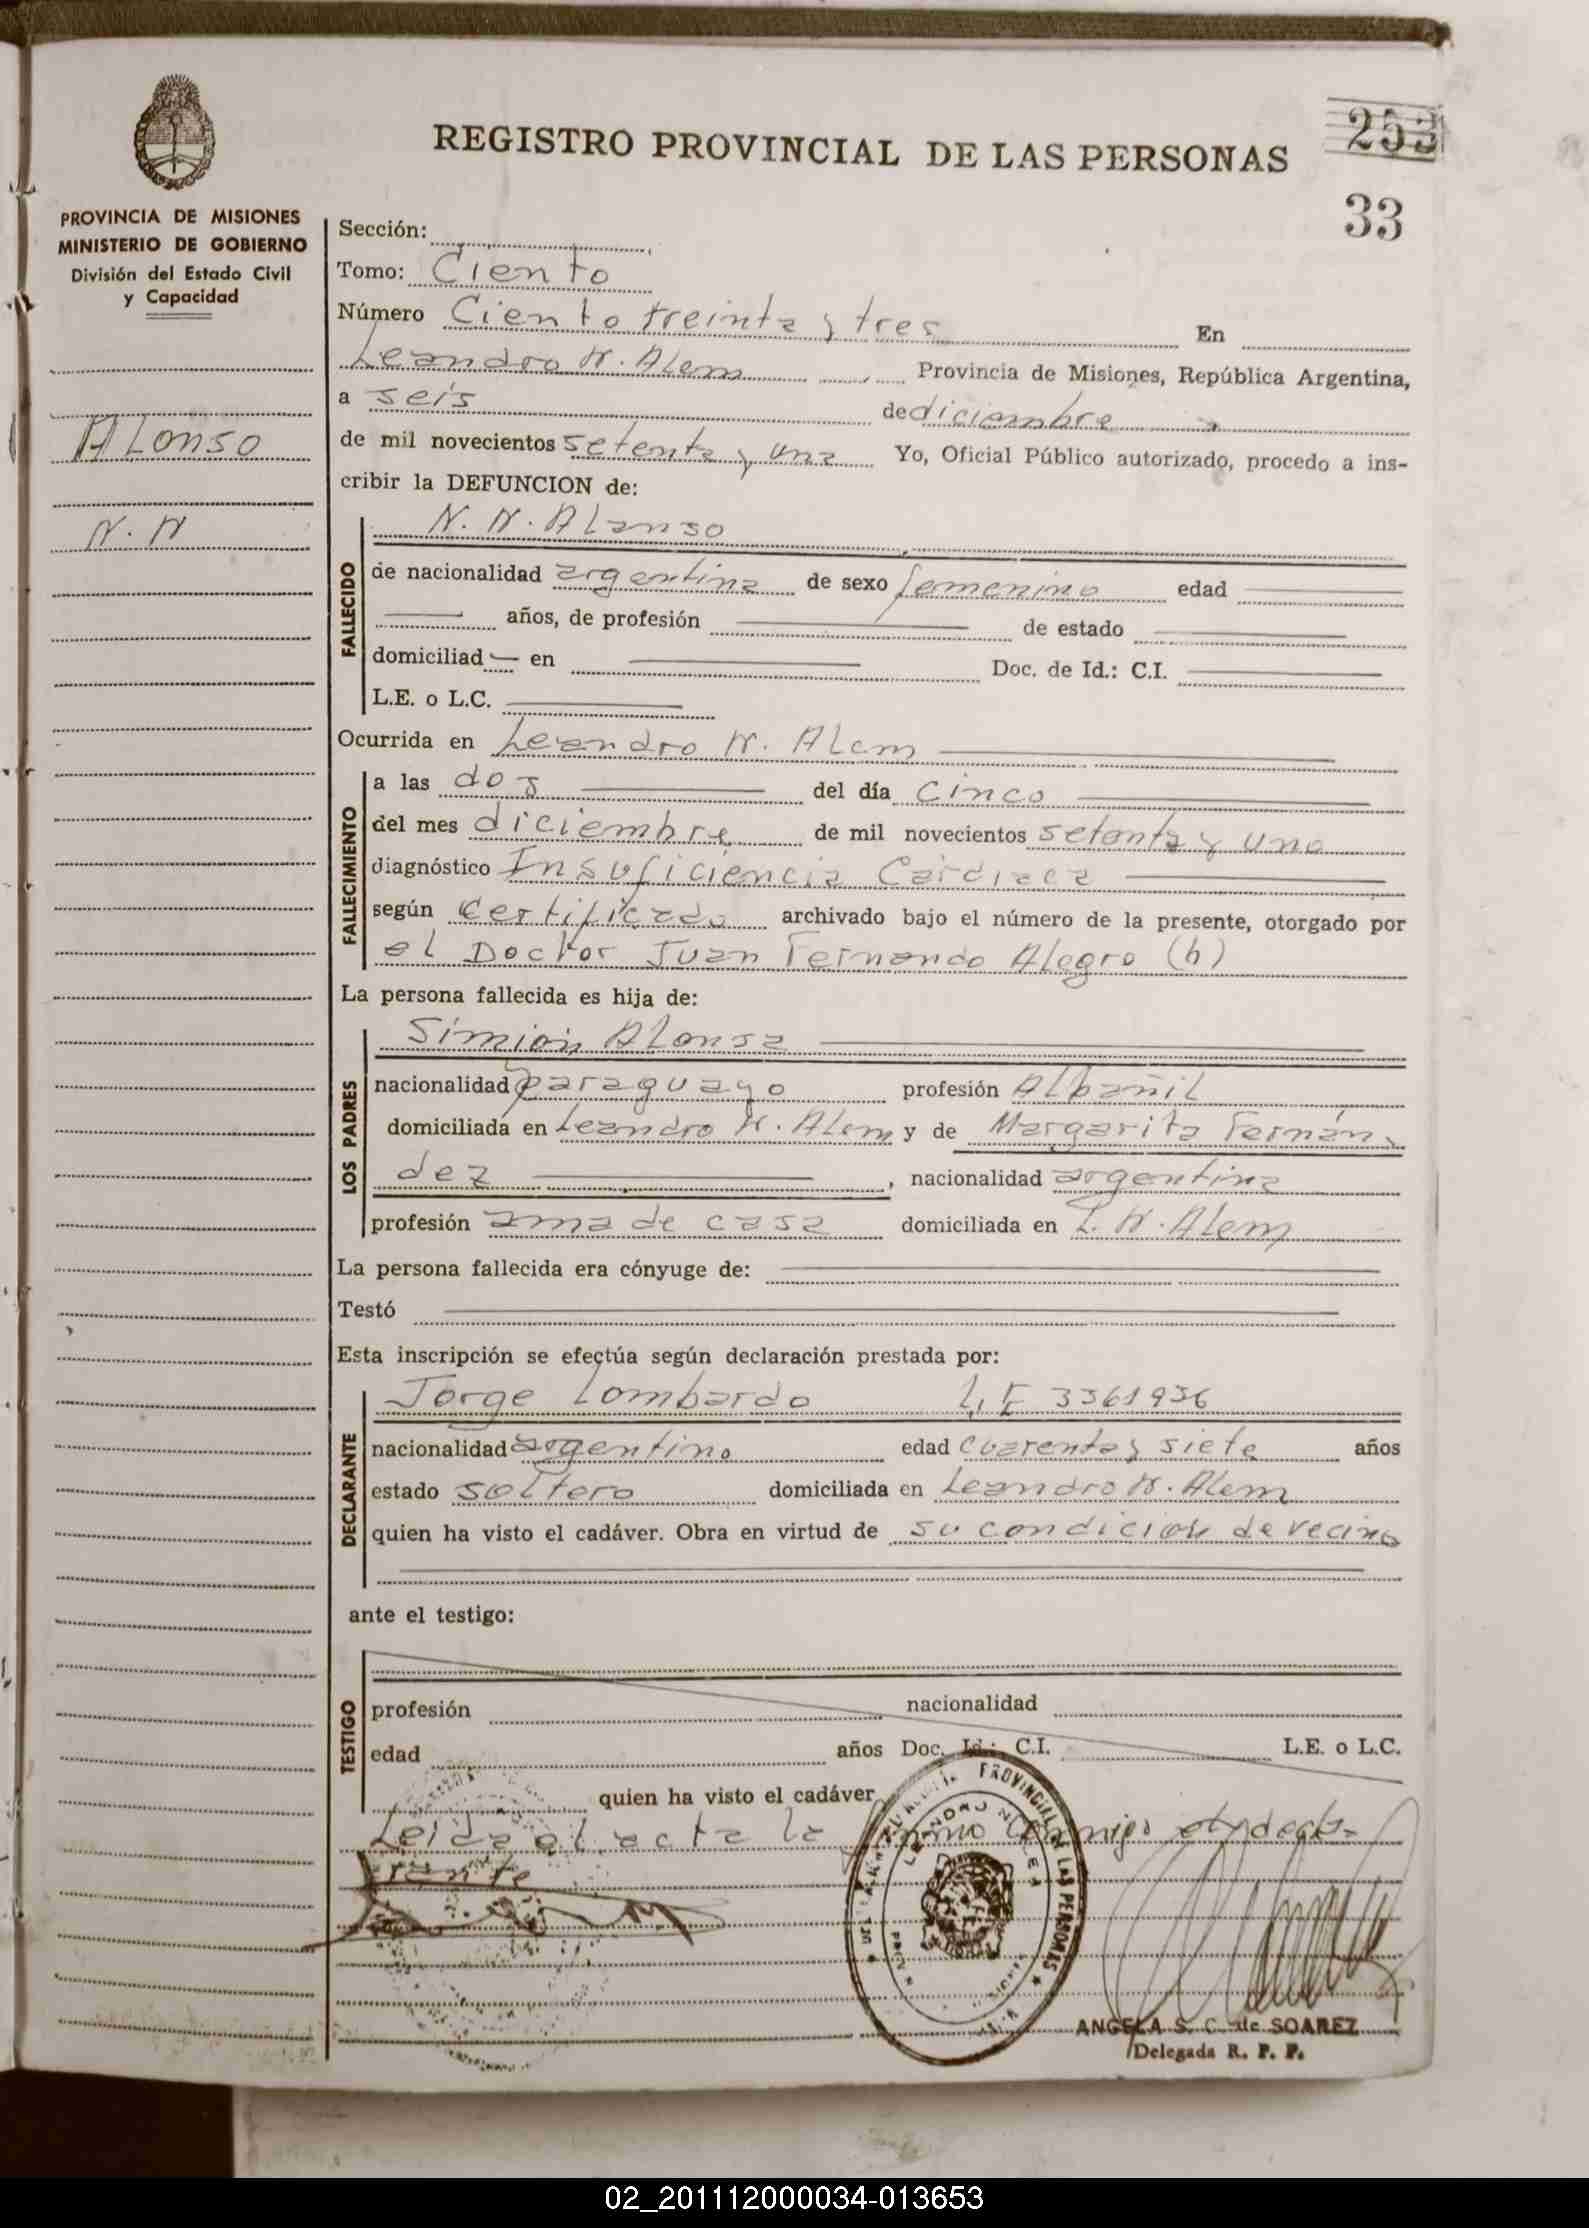 REGISTRO PROVINCIAL DE LAS PERSONAS
253
33
PROVINCIA DE MISIONES
MINISTERIO DE GOBIERNO
División del Estado Civil
y Capacidad
ALonso
N. N
Sección:
Tomo: Ciento
Número Ciento treinta y tres En
Leandro N. Alem Provincia de Misiones, República Argentina,
a seis de diciembre
de mil novecientos setenta y una Yo, Oficial Público autorizado, procedo a ins-
cribir la DEFUNCION de:
FALLECIDO
N. N. Alonso
de nacionalidad argentina de sexo femenino edad
años, de profesión de estado
domiciliad en Doc. de Id.: C.I.
L.E. o L.C.
Ocurrida en Leandro N. Alem
FALLECIMIENTO
a las dos del día cinco
del mes diciembre de mil novecientos setenta y uno
diagnóstico Insuficiencia Cardiaca
según Certificado archivado bajo el número de la presente, otorgado por
el Doctor Juan Fernando Alegro (h)
La persona fallecida es hija de:
LOS PADRES
Simión Alonsa
nacionalidad paraguayo profesión Albañil
domiciliada en Leandro N. Alem y de Margarita Fernán
dez, nacionalidad argentina
profesión ama de casa domiciliada en L. N. Alem
La persona fallecida era cónyuge de:
Testó
Esta inscripción se efectúa según declaración prestada por:
DECLARANTE
Jorge Lombardo L.E 3361936
nacionalidad argentino edad cuarenta y siete años
estado soltero domiciliada en Leandro N. Alem
quien ha visto el cadáver. Obra en virtud de su condición de vecino
ante el testigo:
TESTIGO
profesión nacionalidad
edad años Doc. Id.: C.I. L.E. o L.C.
quien ha visto el cadáver
Leida el acta la firmo conmigo el decla-
rante
PROVINCIAL DE LAS PERSONAS
ANGELA S. C. de SOAREZ
Delegada R. P. P.
02_201112000034-013653